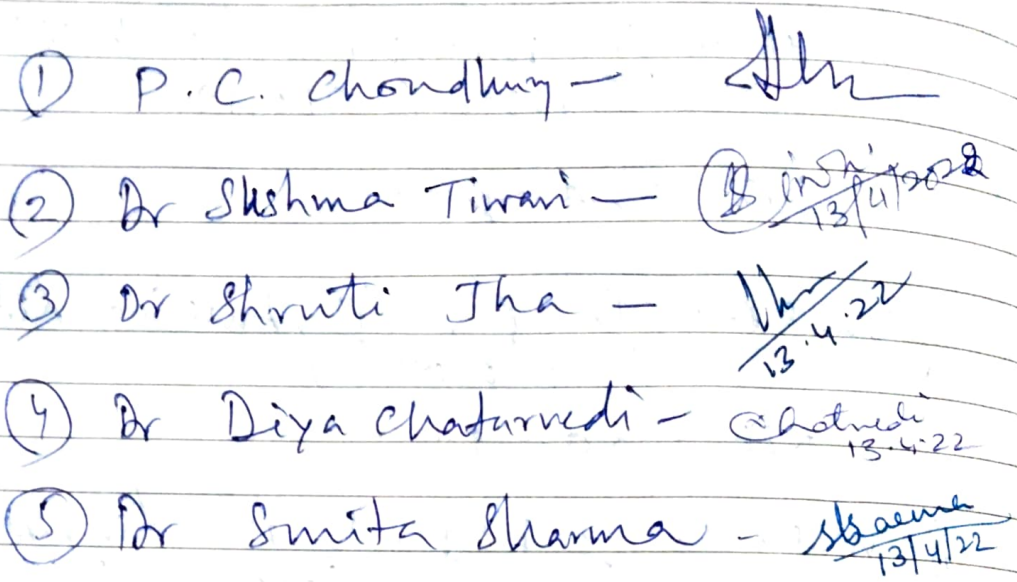 ① P. C. Choudhury -
② Dr Sushma Tiwari - 13/4/2022
③ Dr Shruti Jha - 13.4.22
④ Dr Diya Chaturvedi - 13.4.22
⑤ Dr Smita Sharma - Sharma 13/4/22